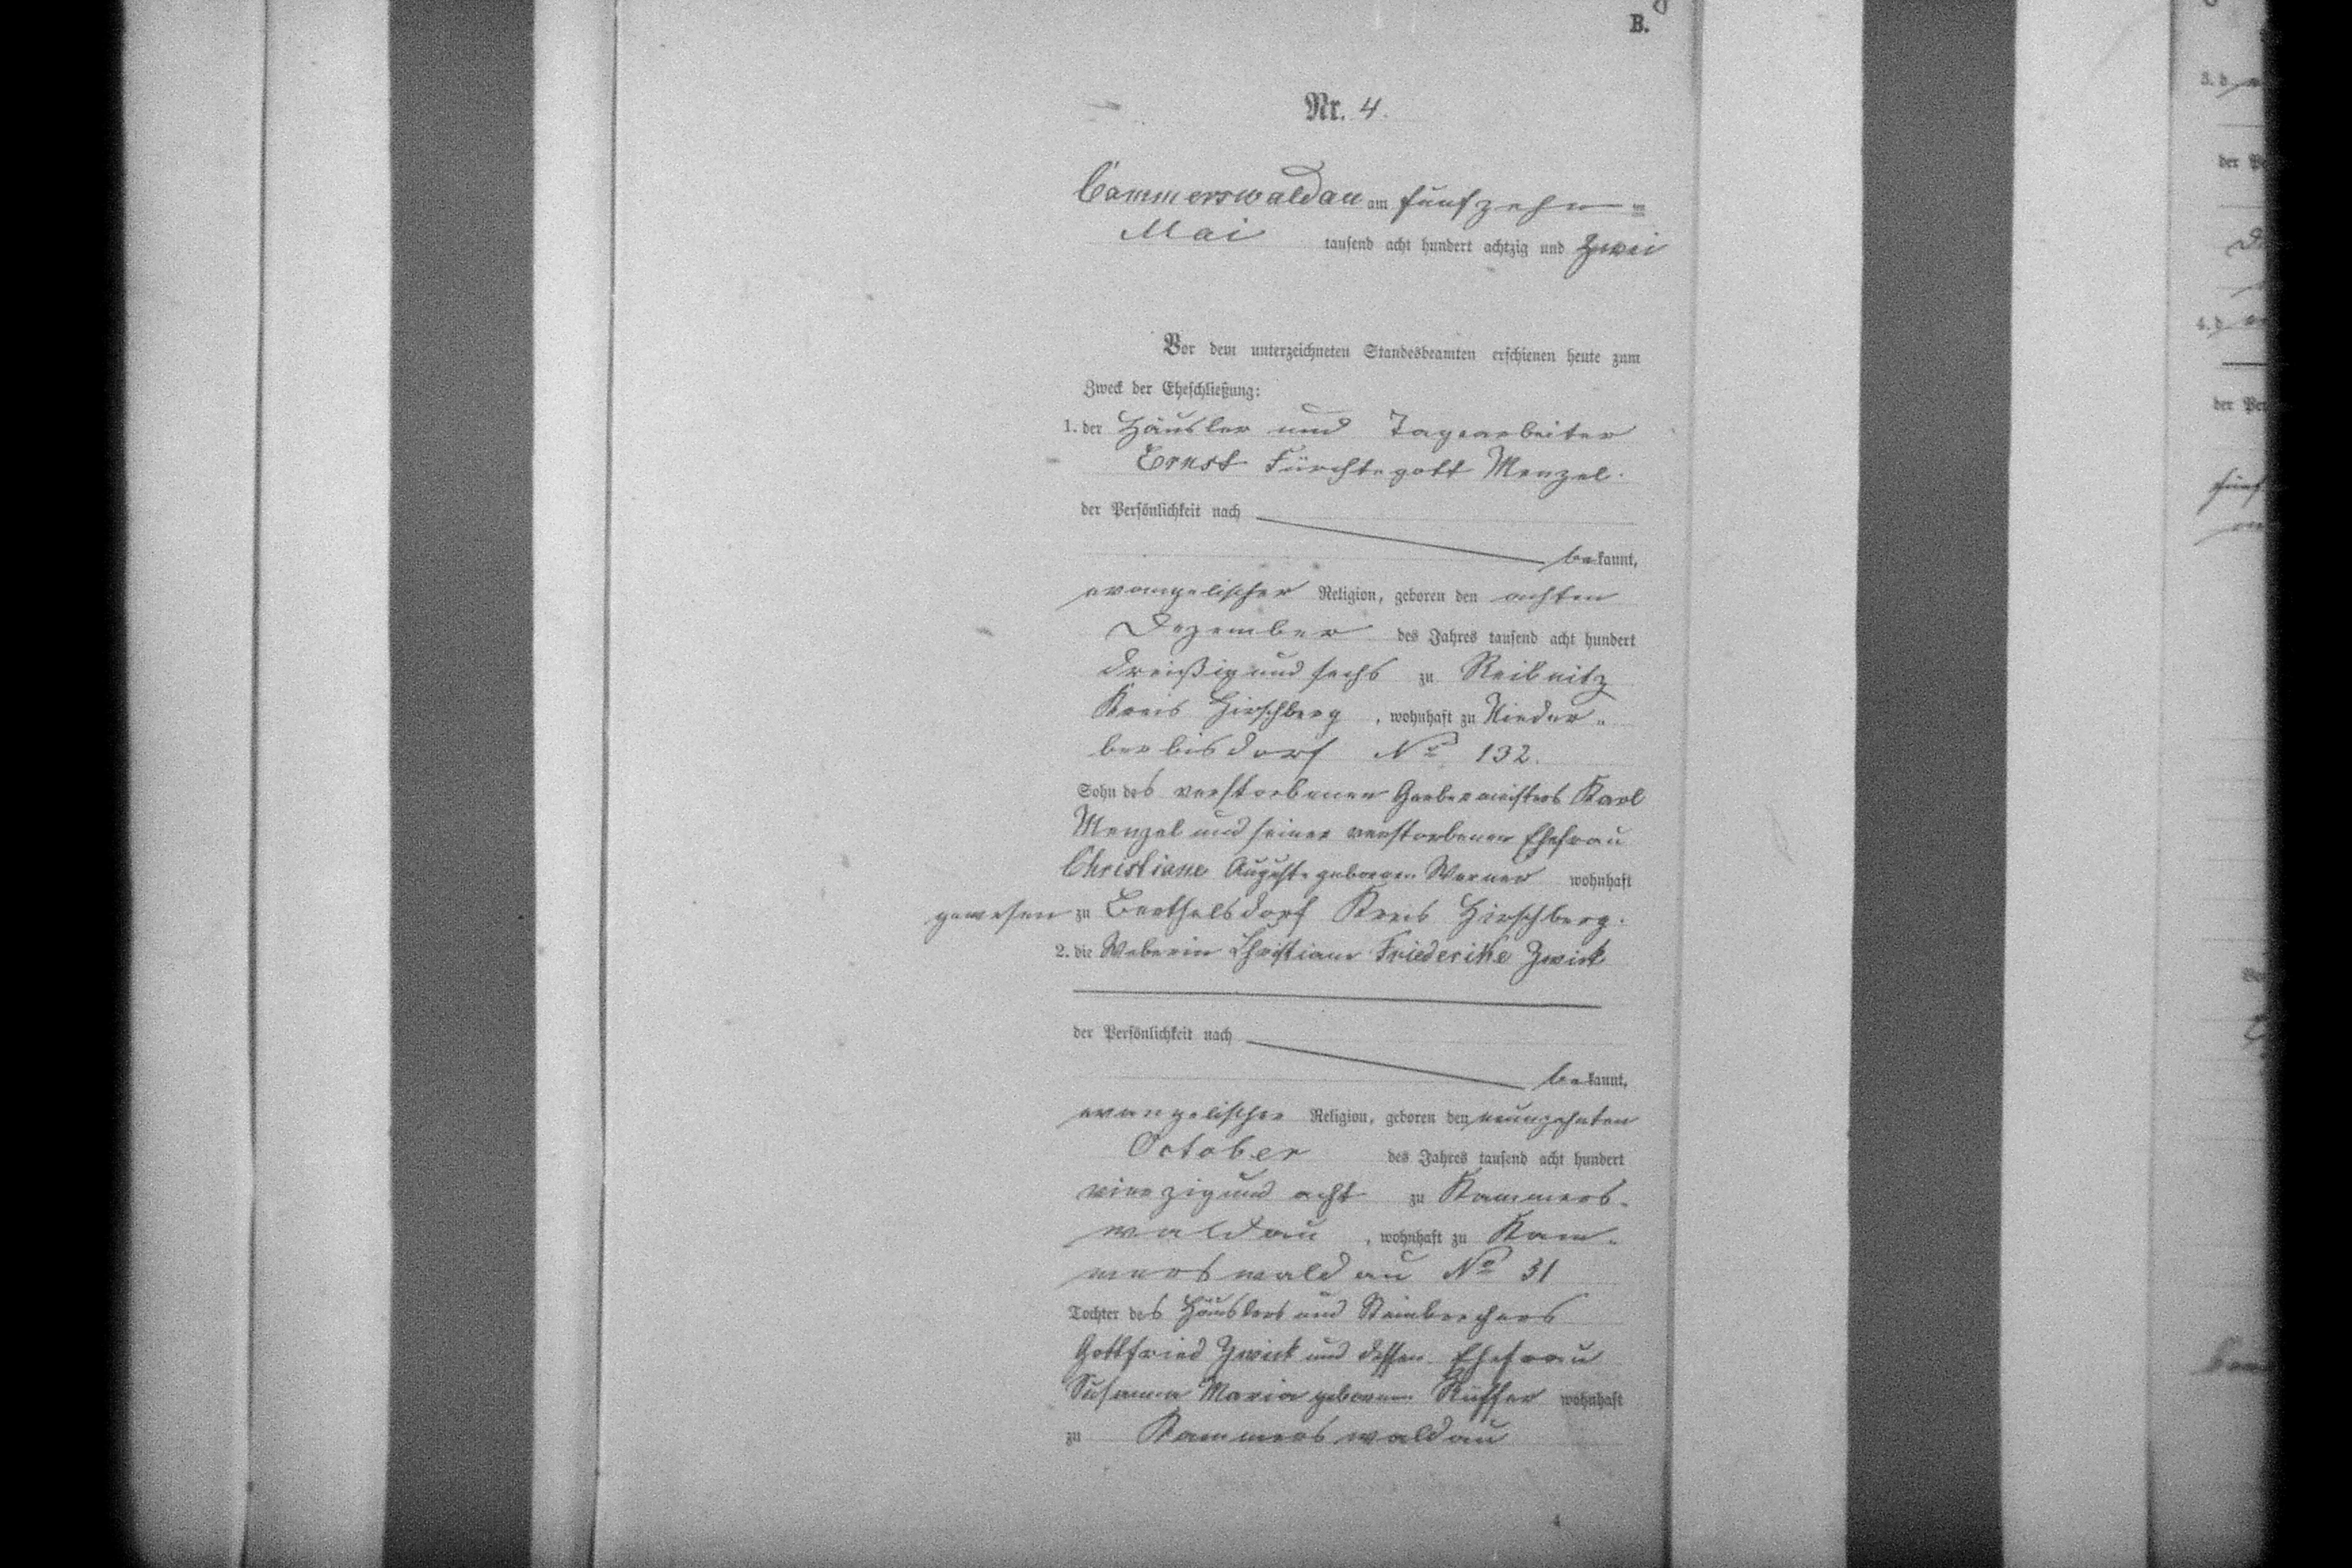 B.
Nr. 4.
Cammerswaldau am fünfzehn=
Mai tausend acht hundert achtzig und zwei
Vor dem unterzeichneten Standesbeamten erschienen heute zum
Zweck der Eheschließung:
1. der Häusler und Tagearbeiter
Ernst Fürchtegott Menzel.
der Persönlichkeit nach
bekannt,
evangelischer Religion, geboren den achten
Dezember des Jahres tausend acht hundert
dreißig und sechs zu Reibnitz
Kreis Hirschberg, wohnhaft zu Nieder-
berbisdorf No 132.
Sohn des verstorbenen Gerbermeisters Karl
Menzel und seiner verstorbenen Ehefrau
Christiane Auguste geborenen Werner wohnhaft
gewesen zu Berthelsdorf Kreis Hirschberg.
2. die Weberin Christiane Friederike Zwick
der Persönlichkeit nach
bekannt,
evangelischer Religion, geboren den neunzehnten
October des Jahres tausend acht hundert
vierzig und acht zu Kammers-
waldau, wohnhaft zu Kam-
merswaldau No 31
Tochter des Häuslers und Steinbrechers
Gottfried Zwick und dessen Ehefrau
Susanna Maria geborenen Rüffer wohnhaft
zu Kammerswaldau
4